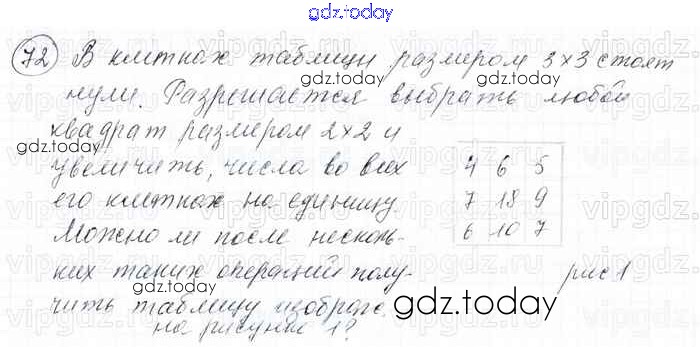 gdz.today
72 В клетках таблицы размером 3×3 стоят
нули. Разрешается выбрать любой
квадрат размером 2×2 и
увеличить, числа во всех
его клетках на единицу.
Можно ли после несколь-
ких таких операций полу-
чить таблицу изображ.
на рисунке 1?
4 6 5
7 18 9
6 10 7
рис 1
gdz.today
gdz.today
gdz.today
gdz.today
gdz.today